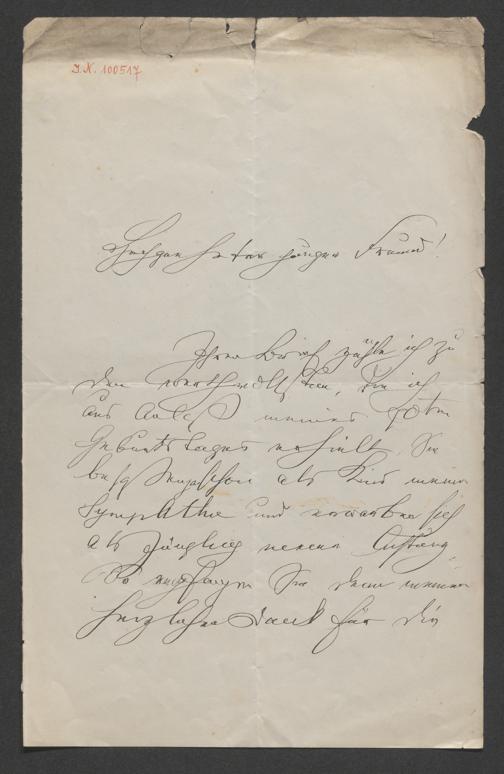 I.N. 100517
Hochgeehrter junger Freund!
Ihren Brief zähle ich zu
den werthvollsten, die ich
aus Anlaß meines 70ten
Geburtstages erhielt. Sie
besaßen schon als Kind meine
Sympathie und erwarben sich
als Jüngling meine Achtung.
So empfangen Sie denn meinen
herzlichen Dank für die